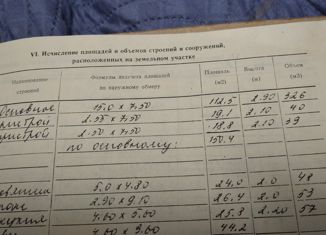 VI. Исчисление площадей и объемов строений и сооружений,
расположенных на земельном участке
Наименование строений Формулы подсчета площадей по наружному обмеру Площадь (м2) Высота (м) Объем (м3)
Основное 15,0 x 7,50 112.5 2.90 326
пристрой 2.55 x 7,50 19,1 2.10 40
пристрой 2.50 x 7,50 18.8 2.10 39
по основному: 150.4
5,0 x 4.80 24,0 2.0 48
2.90 x 9,10 26,4 2.0 53
кухня 4.60 x 5.60 25.8 2.20 57
44,2